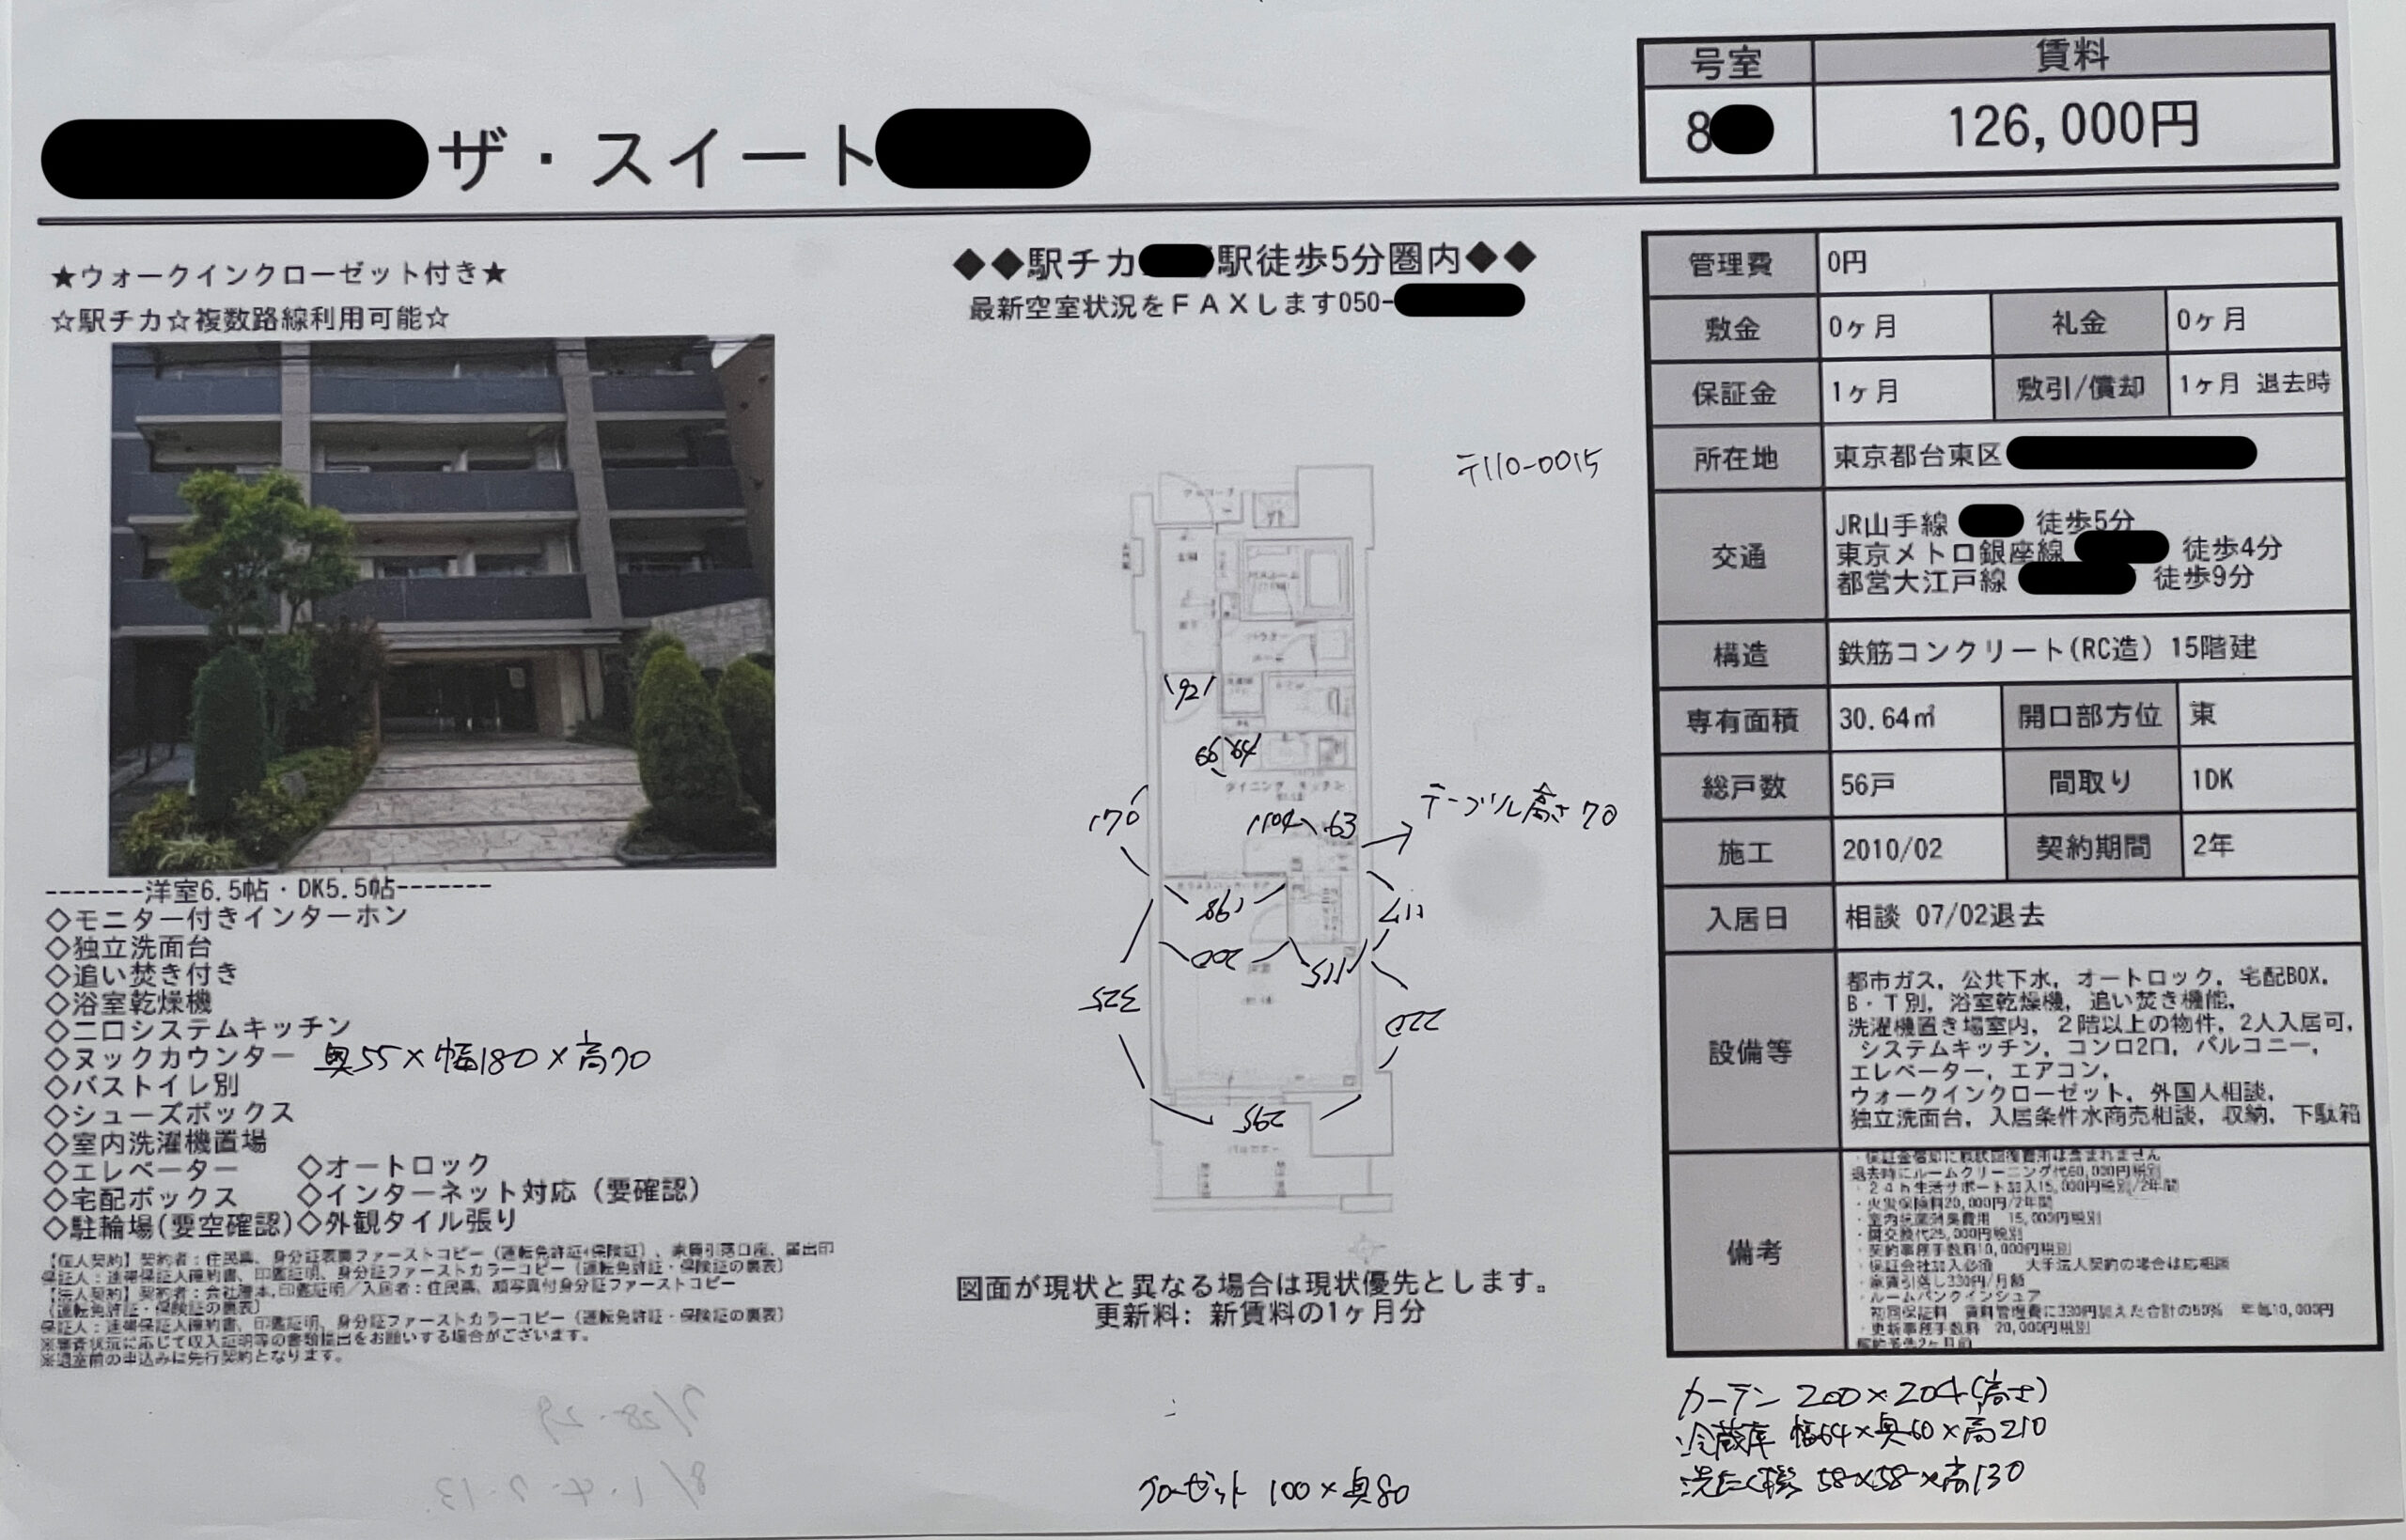 ザ・スイート
号室 賃料
8 126,000円
★ウォークインクローゼット付き★
☆駅チカ☆複数路線利用可能☆
-------洋室6.5帖・DK5.5帖-------
◇モニター付きインターホン
◇独立洗面台
◇追い焚き付き
◇浴室乾燥機
◇二口システムキッチン
◇ヌックカウンター 奥55×幅180×高70
◇バストイレ別
◇シューズボックス
◇室内洗濯機置場
◇エレベーター ◇オートロック
◇宅配ボックス ◇インターネット対応(要確認)
◇駐輪場(要空確認)◇外観タイル張り
【個人契約】契約者:住民票、身分証表裏ファーストコピー(運転免許証・保険証)、家賃引落口座、届出印
保証人:連帯保証人確約書、印鑑証明、身分証ファーストカラーコピー(運転免許証・保険証の裏表)
【法人契約】契約者:会社謄本,印鑑証明/入居者:住民票、顔写真付身分証ファーストコピー
(運転免許証・保険証の裏表)
保証人:連帯保証人確約書、印鑑証明、身分証ファーストカラーコピー(運転免許証・保険証の裏表)
※審査状況に応じて収入証明等の書類提出をお願いする場合がございます。
※退室前の申込みは先行契約となります。
◆◆駅チカ 駅徒歩5分圏内◆◆
最新空室状況をFAXします050-
〒110-0015
192
66 64
ダイニングキッチン
170
104 63
テーブル高さ70
198
117
200
115
325
220
295
バルコニー
図面が現状と異なる場合は現状優先とします。
更新料: 新賃料の1ヶ月分
クローゼット 100×奥80
管理費 0円
敷金 0ヶ月 礼金 0ヶ月
保証金 1ヶ月 敷引/償却 1ヶ月 退去時
所在地 東京都台東区
交通 JR山手線 徒歩5分
東京メトロ銀座線 徒歩4分
都営大江戸線 徒歩9分
構造 鉄筋コンクリート(RC造) 15階建
専有面積 30.64㎡ 開口部方位 東
総戸数 56戸 間取り 1DK
施工 2010/02 契約期間 2年
入居日 相談 07/02退去
設備等 都市ガス, 公共下水, オートロック, 宅配BOX,
B・T別, 浴室乾燥機, 追い焚き機能,
洗濯機置き場室内, 2階以上の物件, 2人入居可,
システムキッチン, コンロ2口, バルコニー,
エレベーター, エアコン,
ウォークインクローゼット, 外国人相談,
独立洗面台, 入居条件水商売相談, 収納, 下駄箱
備考 ・保証金償却に原状回復費用は含まれません
退去時にルームクリーニング代60,000円税別
・24h生活サポート加入15,000円税別/2年間
・火災保険料20,000円/2年間
・室内抗菌消臭費用 15,000円税別
・鍵交換代25,000円税別
・契約事務手数料10,000円税別
・保証会社加入必須 大手法人契約の場合は応相談
・家賃引落し330円/月額
・ルームバンクインシュア
初回保証料 賃料管理費に330円加えた合計の50% 年毎10,000円
・更新事務手数料 20,000円税別
解約予告2ヶ月前
カーテン 200×204(高さ)
冷蔵庫 幅64×奥60×高210
洗たく機 58×58×高130